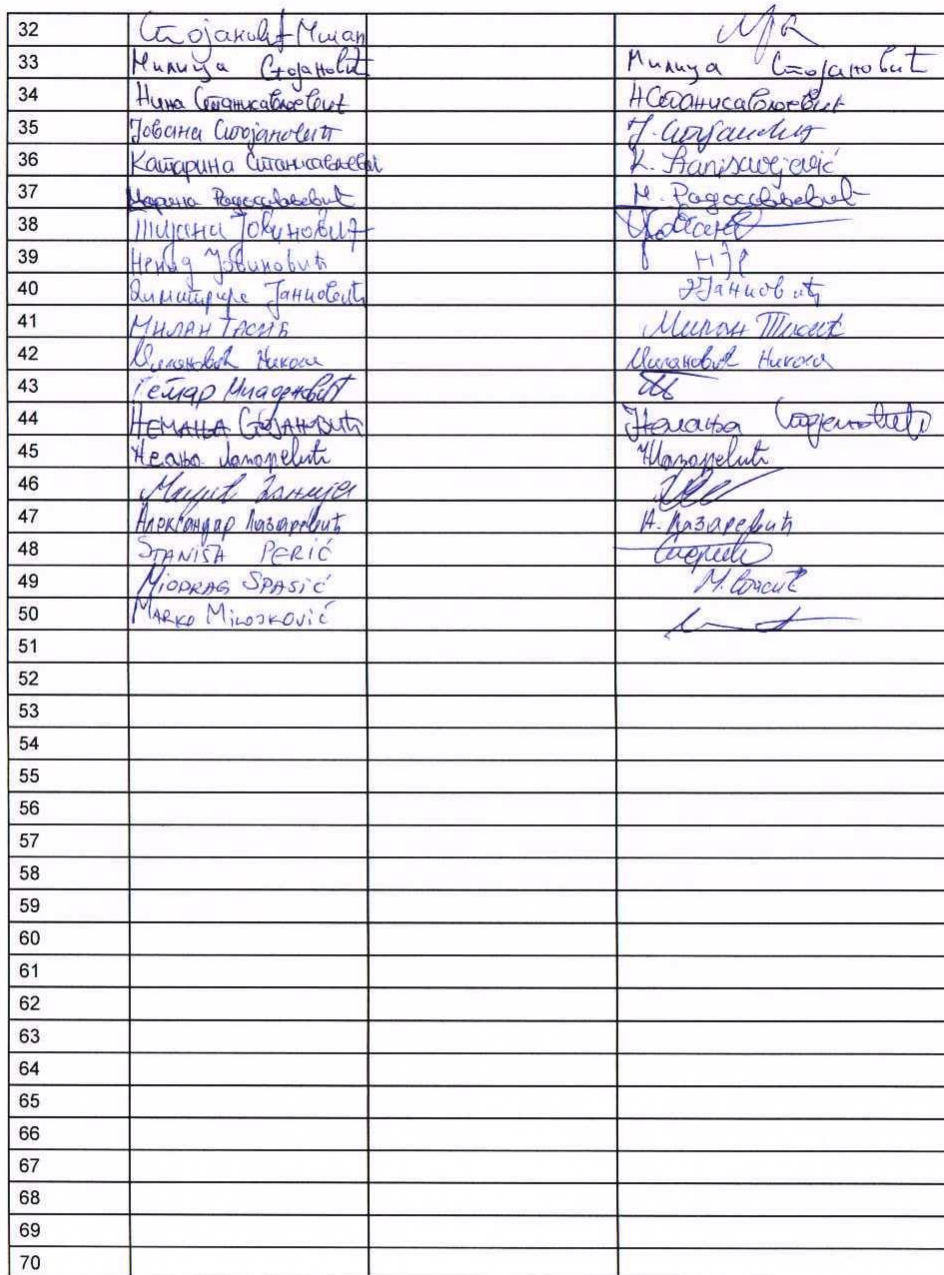 32 Стојановић Милан
33 Милица Стојановић Милица Стојановић
34 Нина Станисављевић НСтанисављевић
35 Јована Стојановић Ј. Стојановић
36 Катарина Станисављевић K. Stanisavljević
37 Марина Радосављевић М. Радосављевић
38 Тијана Јовановић
39 Ненад Јовановић
40 Димитрије Јанковић
41 МИЛАН ТАСИЋ Милан Тасић
42 Милановић Никола Милановић Никола
43 Петар Младеновић
44 НЕМАЊА СТОЈАНОВИЋ Немања Стојановић
45 Лазаревић
46
47 Александар Лазаревић А. Лазаревић
48 STANIŠA PERIĆ
49 MIODRAG SPASIĆ М. Спасић
50 MARKO MILOŠKOVIĆ
51
52
53
54
55
56
57
58
59
60
61
62
63
64
65
66
67
68
69
70